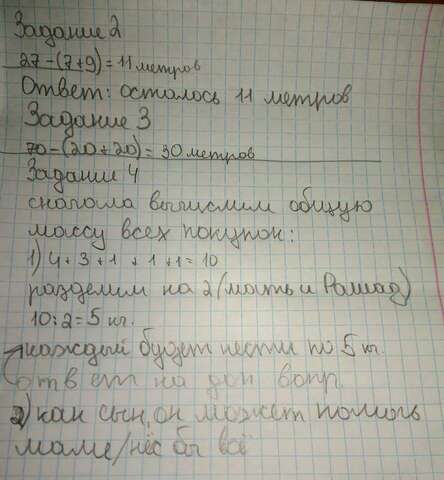 Задание 2
27-(7+9)=11 метров
Ответ: осталось 11 метров
Задание 3
70-(20+20)=30 метров
Задании 4
сначала вычислим общую
массу всех покупок:
1) 4+3+1+1+1=10
разделим на 2 (мать и Рашад)
10:2=5 кг.
каждый будет нести по 5 кг.
ответ на доп вопр.
2) как сын, он может помочь
маме/нёс бы всё